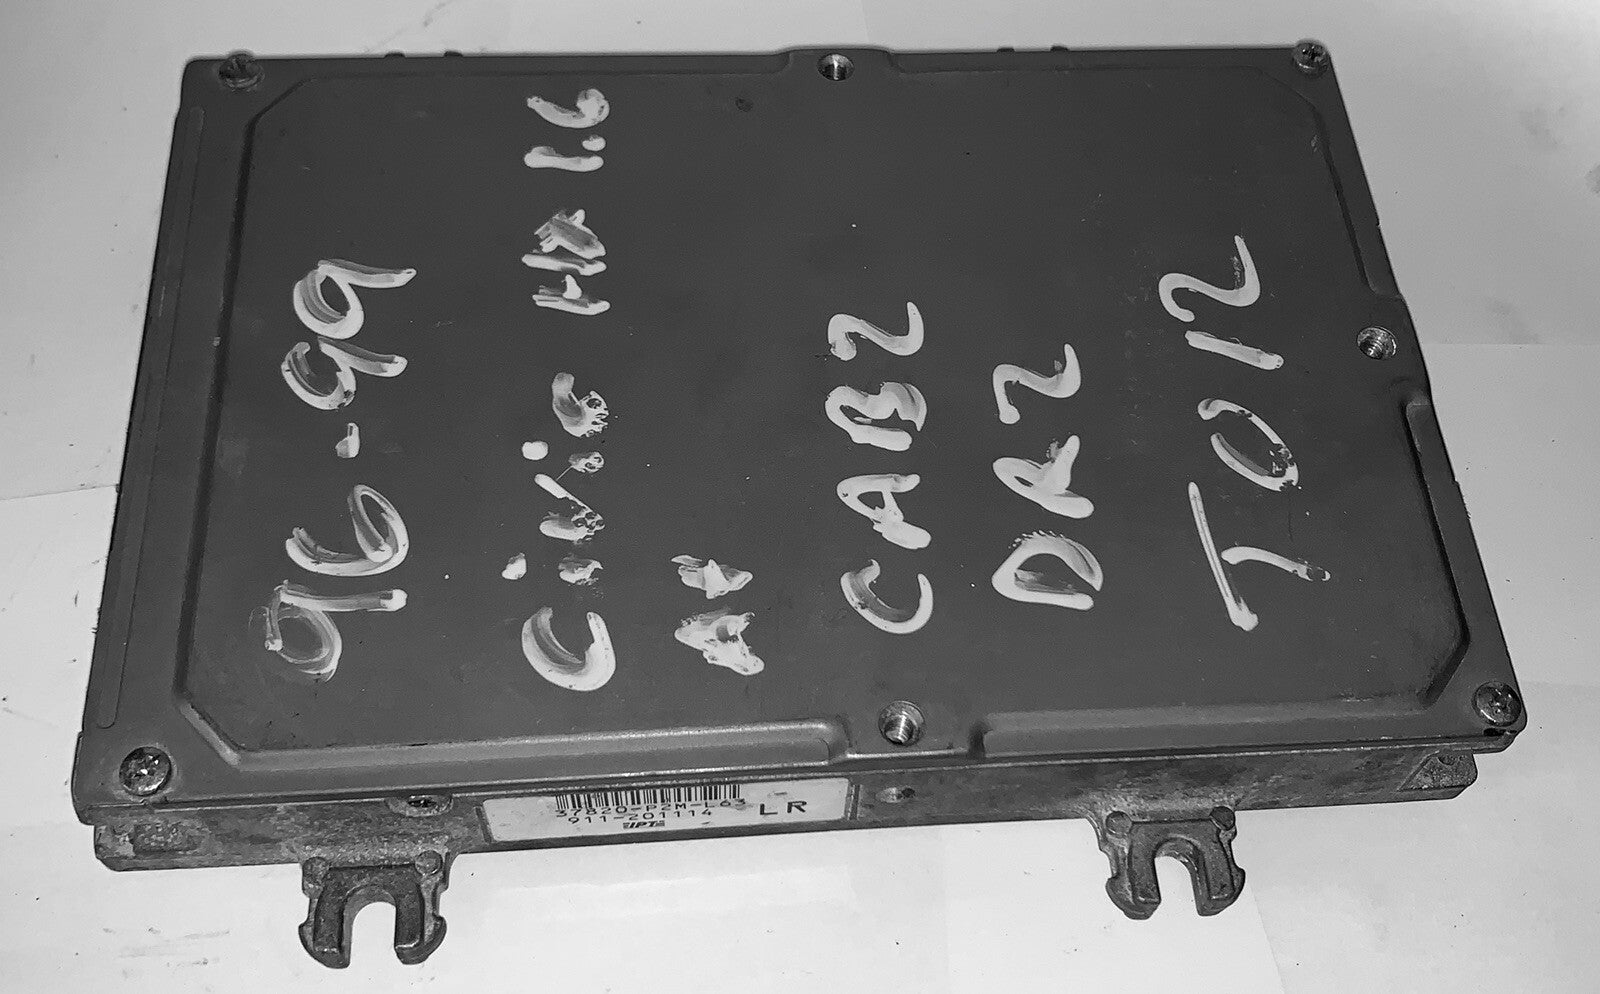 96-99
Civic HX 1.6
At
CAB2
DR2
TO12
37820-P2M-L63
911-201114
LR